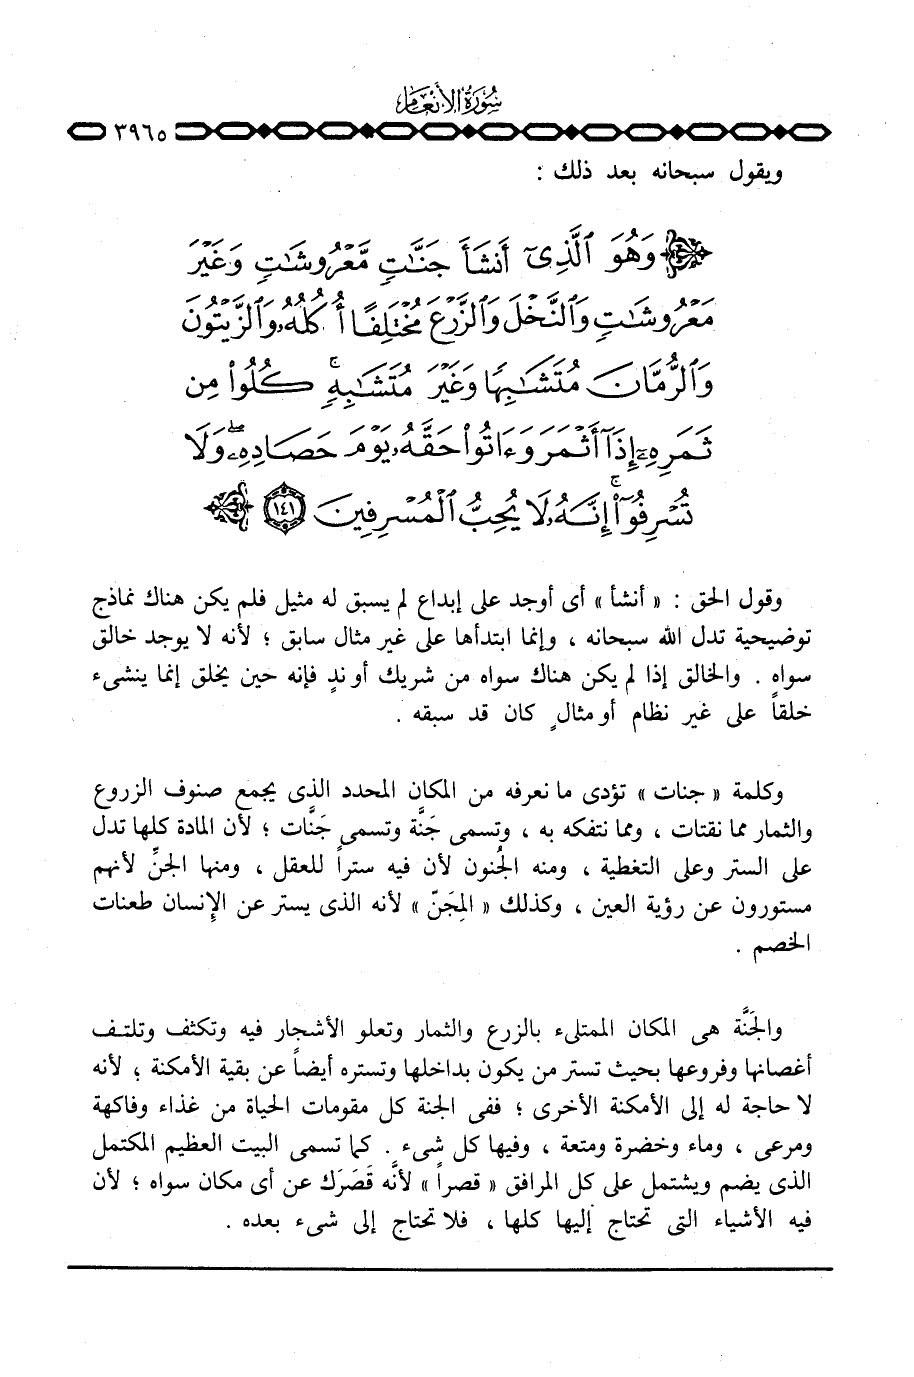 سورة الأنعام
٣٩٦٥
ويقول سبحانه بعد ذلك :
وَهُوَ ٱلَّذِىٓ أَنشَأَ جَنَّٰتٍ مَّعْرُوشَٰتٍ وَغَيْرَ
مَعْرُوشَٰتٍ وَٱلنَّخْلَ وَٱلزَّرْعَ مُخْتَلِفًا أُكُلُهُۥ وَٱلزَّيْتُونَ
وَٱلرُّمَّانَ مُتَشَٰبِهًا وَغَيْرَ مُتَشَٰبِهٍۚ كُلُوا۟ مِن
ثَمَرِهِۦٓ إِذَآ أَثْمَرَ وَءَاتُوا۟ حَقَّهُۥ يَوْمَ حَصَادِهِۦۖ وَلَا
تُسْرِفُوٓا۟ۚ إِنَّهُۥ لَا يُحِبُّ ٱلْمُسْرِفِينَ ١٤١
وقول الحق : « أنشأ » أى أوجد على إبداع لم يسبق له مثيل فلم يكن هناك نماذج
توضيحية تدل الله سبحانه ، وإنما ابتدأها على غير مثال سابق ؛ لأنه لا يوجد خالق
سواه . والخالق إذا لم يكن هناك سواه من شريك أو ندٍ فإنه حين يخلق إنما ينشىء
خلقاً على غير نظام أو مثالٍ كان قد سبقه .
وكلمة « جنات » تؤدى ما نعرفه من المكان المحدد الذى يجمع صنوف الزروع
والثمار مما نقتات ، ومما نتفكه به ، وتسمى جَنَّة وتسمى جَنَّات ؛ لأن المادة كلها تدل
على الستر وعلى التغطية ، ومنه الجُنون لأن فيه ستراً للعقل ، ومنها الجنِّ لأنهم
مستورون عن رؤية العين ، وكذلك « المِجَنّ » لأنه الذى يستر عن الإنسان طعنات
الخصم .
والجَنَّة هى المكان الممتلىء بالزرع والثمار وتعلو الأشجار فيه وتكثف وتلتف
أغصانها وفروعها بحيث تستر من يكون بداخلها وتستره أيضاً عن بقية الأمكنة ؛ لأنه
لا حاجة له إلى الأمكنة الأخرى ؛ ففى الجنة كل مقومات الحياة من غذاء وفاكهة
ومرعى ، وماء وخضرة ومتعة ، وفيها كل شىء . كما تسمى البيت العظيم المكتمل
الذى يضم ويشتمل على كل المرافق « قصراً » لأنَّه قَصَرَك عن أى مكان سواه ؛ لأن
فيه الأشياء التى تحتاج إليها كلها ، فلا تحتاج إلى شىء بعده .